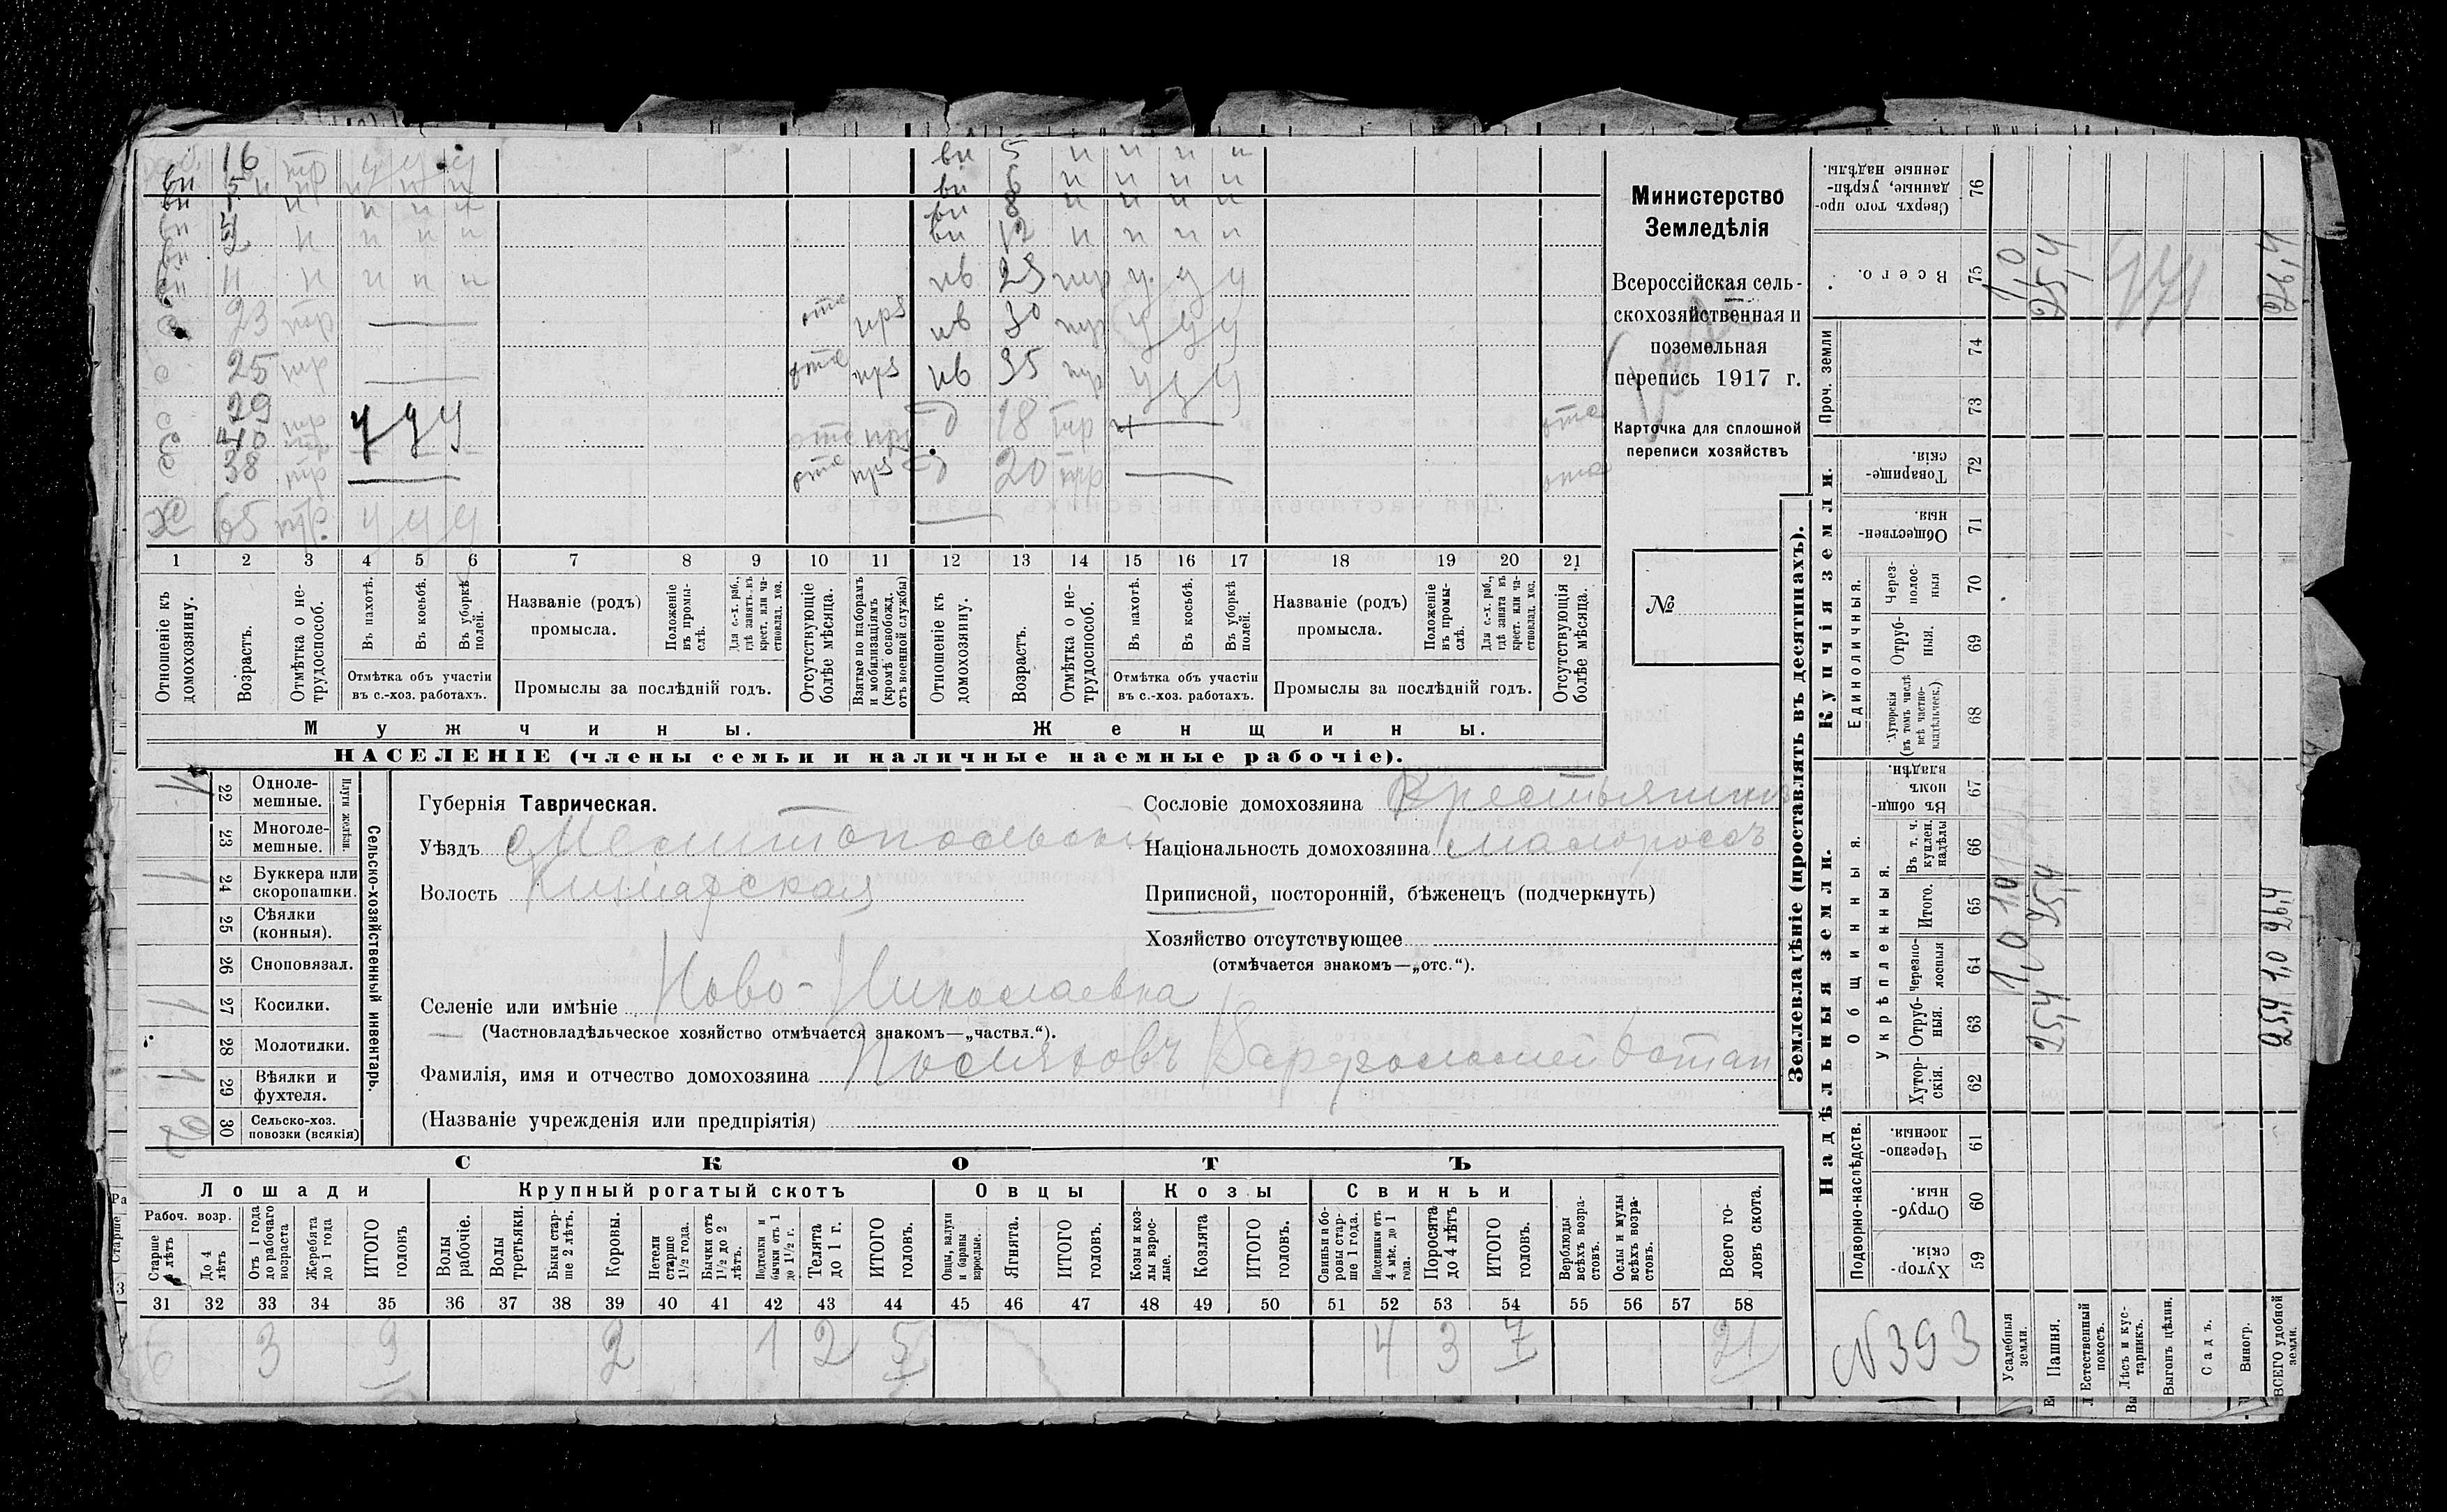 вн 16 тр у у у
вн 5 н н н н н
вн 5 н н н н
вн 2 н н н н
вн н н н н н
с 23 тр — отс прз
с 25 тр — отс прз
с 29 тр у у у
с 40 тр — отс прз
с 38 тр — отс прз
х 65 тр. у у у
вн 5 н н н н
вн 6 н н н н
вн 8 н н н н
вн 12 н н н н
нв 25 тр у у у
нв 30 тр у у у
нв 35 тр у у у
д 18 тр — отс
д 20 тр — отс
1 2 3 4 5 6 7 8 9 10 11 12 13 14 15 16 17 18 19 20 21
Отношеніе къ домохозяину.
Возрастъ.
Отмѣтка о нетрудоспособ.
Въ пахотѣ.
Въ косьбѣ.
Въ уборкѣ полей.
Отмѣтка объ участіи
въ с.-хоз. работахъ.
Названіе (родъ)
промысла.
Положеніе въ промыслѣ.
Для с.-х. раб., гдѣ занятъ: въ крест. или частновлад. хоз.
Промыслы за послѣдній годъ.
Отсутствующіе болѣе мѣсяца.
Взятые по наборамъ и мобилизаціямъ (кромѣ освобожд. отъ военной службы)
Отношеніе къ домохозяину.
Возрастъ.
Отмѣтка о нетрудоспособ.
Въ пахотѣ.
Въ косьбѣ.
Въ уборкѣ полей.
Отмѣтка объ участіи
въ с.-хоз. работахъ.
Названіе (родъ)
промысла.
Положеніе въ промыслѣ.
Для с.-х. раб., гдѣ занята въ крест. или частновлад. хоз.
Промыслы за послѣдній годъ.
Отсутствующія болѣе мѣсяца.
Мужчины. Женщины.
НАСЕЛЕНІЕ (члены семьи и наличные наемные рабочіе).
Министерство
Земледѣлія
Всероссійская сель-
скохозяйственная и
поземельная
перепись 1917 г.
Карточка для сплошной
переписи хозяйствъ
№
Сельско-хозяйственный инвентарь.
Плуги желѣзн.
1 22 Одноле-
мешные.
23 Многоле-
мешные.
1 24 Буккера или
скоропашки.
25 Сѣялки
(конныя).
26 Сноповязал.
1 27 Косилки.
28 Молотилки.
1 29 Вѣялки и
фухтеля.
2 30 Сельско-хоз.
повозки (всякія)
Губернія Таврическая.
Уѣздъ Мелитопольскій
Волость
Селеніе или имѣніе Ново-Николаевка
(Частновладѣльческое хозяйство отмѣчается знакомъ—„частвл.“).
Фамилія, имя и отчество домохозяина Варфоломей Остап
(Названіе учрежденія или предпріятія)
Сословіе домохозяина Крестьянинъ
Національность домохозяина малороссъ
Приписной, посторонній, бѣженецъ (подчеркнуть)
Хозяйство отсутствующее
(отмѣчается знакомъ—„отс.“).
СКОТЪ
Лошади Крупный рогатый скотъ Овцы Козы Свиньи
Рабоч. возр.
Старше 4 лѣтъ
До 4 лѣтъ
Отъ 1 года до рабочаго возраста
Жеребята до 1 года
ИТОГО головъ
Волы рабочіе.
Волы третьяки.
Быки старше 2 лѣтъ.
Коровы.
Нетели старше 1½ года.
Бычки отъ 1½ до 2 лѣтъ.
Подтелки и бычки отъ 1 до 1½ г.
Телята до 1 г.
ИТОГО головъ.
Овцы, валухи и бараны взрослые.
Ягнята.
ИТОГО головъ.
Козы и козлы взрослые.
Козлята
ИТОГО головъ.
Свиньи и боровы старше 1 года.
Подсвинки отъ 4 мѣс. до 1 года.
Поросята до 4 лѣтъ
ИТОГО головъ.
Верблюды всѣхъ возрастовъ.
Ослы и мулы всѣхъ возрастовъ.
Всего головъ скота.
31 32 33 34 35 36 37 38 39 40 41 42 43 44 45 46 47 48 49 50 51 52 53 54 55 56 57 58
6 3 9 2 1 2 5 4 3 7 21
Землевладѣніе (проставлять въ десятинахъ).
Надѣльныя земли.
Купчія земли.
Проч. земли
Подворно-наслѣдств.
Общинныя.
Укрѣпленныя.
Единоличныя.
Сверхъ того проданные, укрѣпленные надѣлы. 76
Всего. 75 1,0 25,4 26,4
74
73
Товарищескія 72
Общественныя. 71
Черезполосныя 70
Отрубныя. 69
Хуторскія (въ томъ числѣ всѣ частновладѣльческ.) 68
Въ общинномъ владѣн. 67
Въ т. ч. куплен. надѣлы 66
Итого. 65 1,0 25,4 26,4
Черезполосныя 64 1,0 1,0
Отрубныя. 63 25,4 25,4
Хуторскія. 62
Черезполосныя. 61
Отрубныя. 60
Хуторскія. 59
N 393
Усадебныя земли.
Пашня.
Естественный покосъ.
Лѣсъ и кустарникъ.
Выгонъ цѣлин.
Садъ.
Виногр.
ВСЕГО удобной земли.